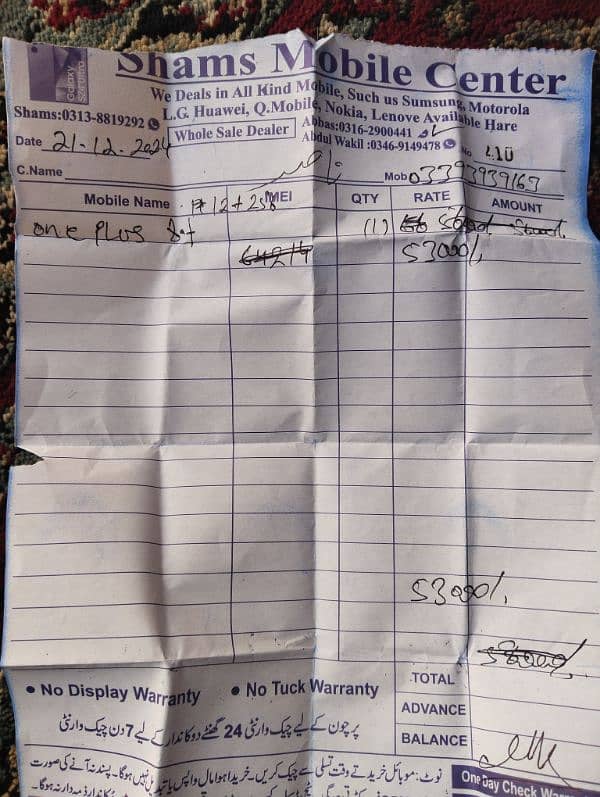 Shams Mobile Center
We Deals in All Kind Mobile, Such us Sumsung, Motorola
L.G. Huawei, Q.Mobile, Nokia, Lenove Available Hare
Galaxy
Shams:0313-8819292
Whole Sale Dealer
Abbas:0316-2900441
Abdul Wakil :0346-9149478
Date 21-12.2024
No 410
C.Name ناصر
Mob 03393939169
Mobile Name IMEI QTY RATE AMOUNT
12+256
one Plus 8T (1)
53000/.
53000/.
• No Display Warranty • No Tuck Warranty
TOTAL
ADVANCE
BALANCE
پرچون کے لیے چیک وارنٹی 24 گھنٹے دوکاندار کے لیے 7 دن چیک وارنٹی
نوٹ: موبائل خریدتے وقت تسلی سے چیک کریں۔ خریدا ہوا مال واپس یا تبدیل نہیں ہوگا۔ پسند نہ آنے کی صورت
One Day Check Warra